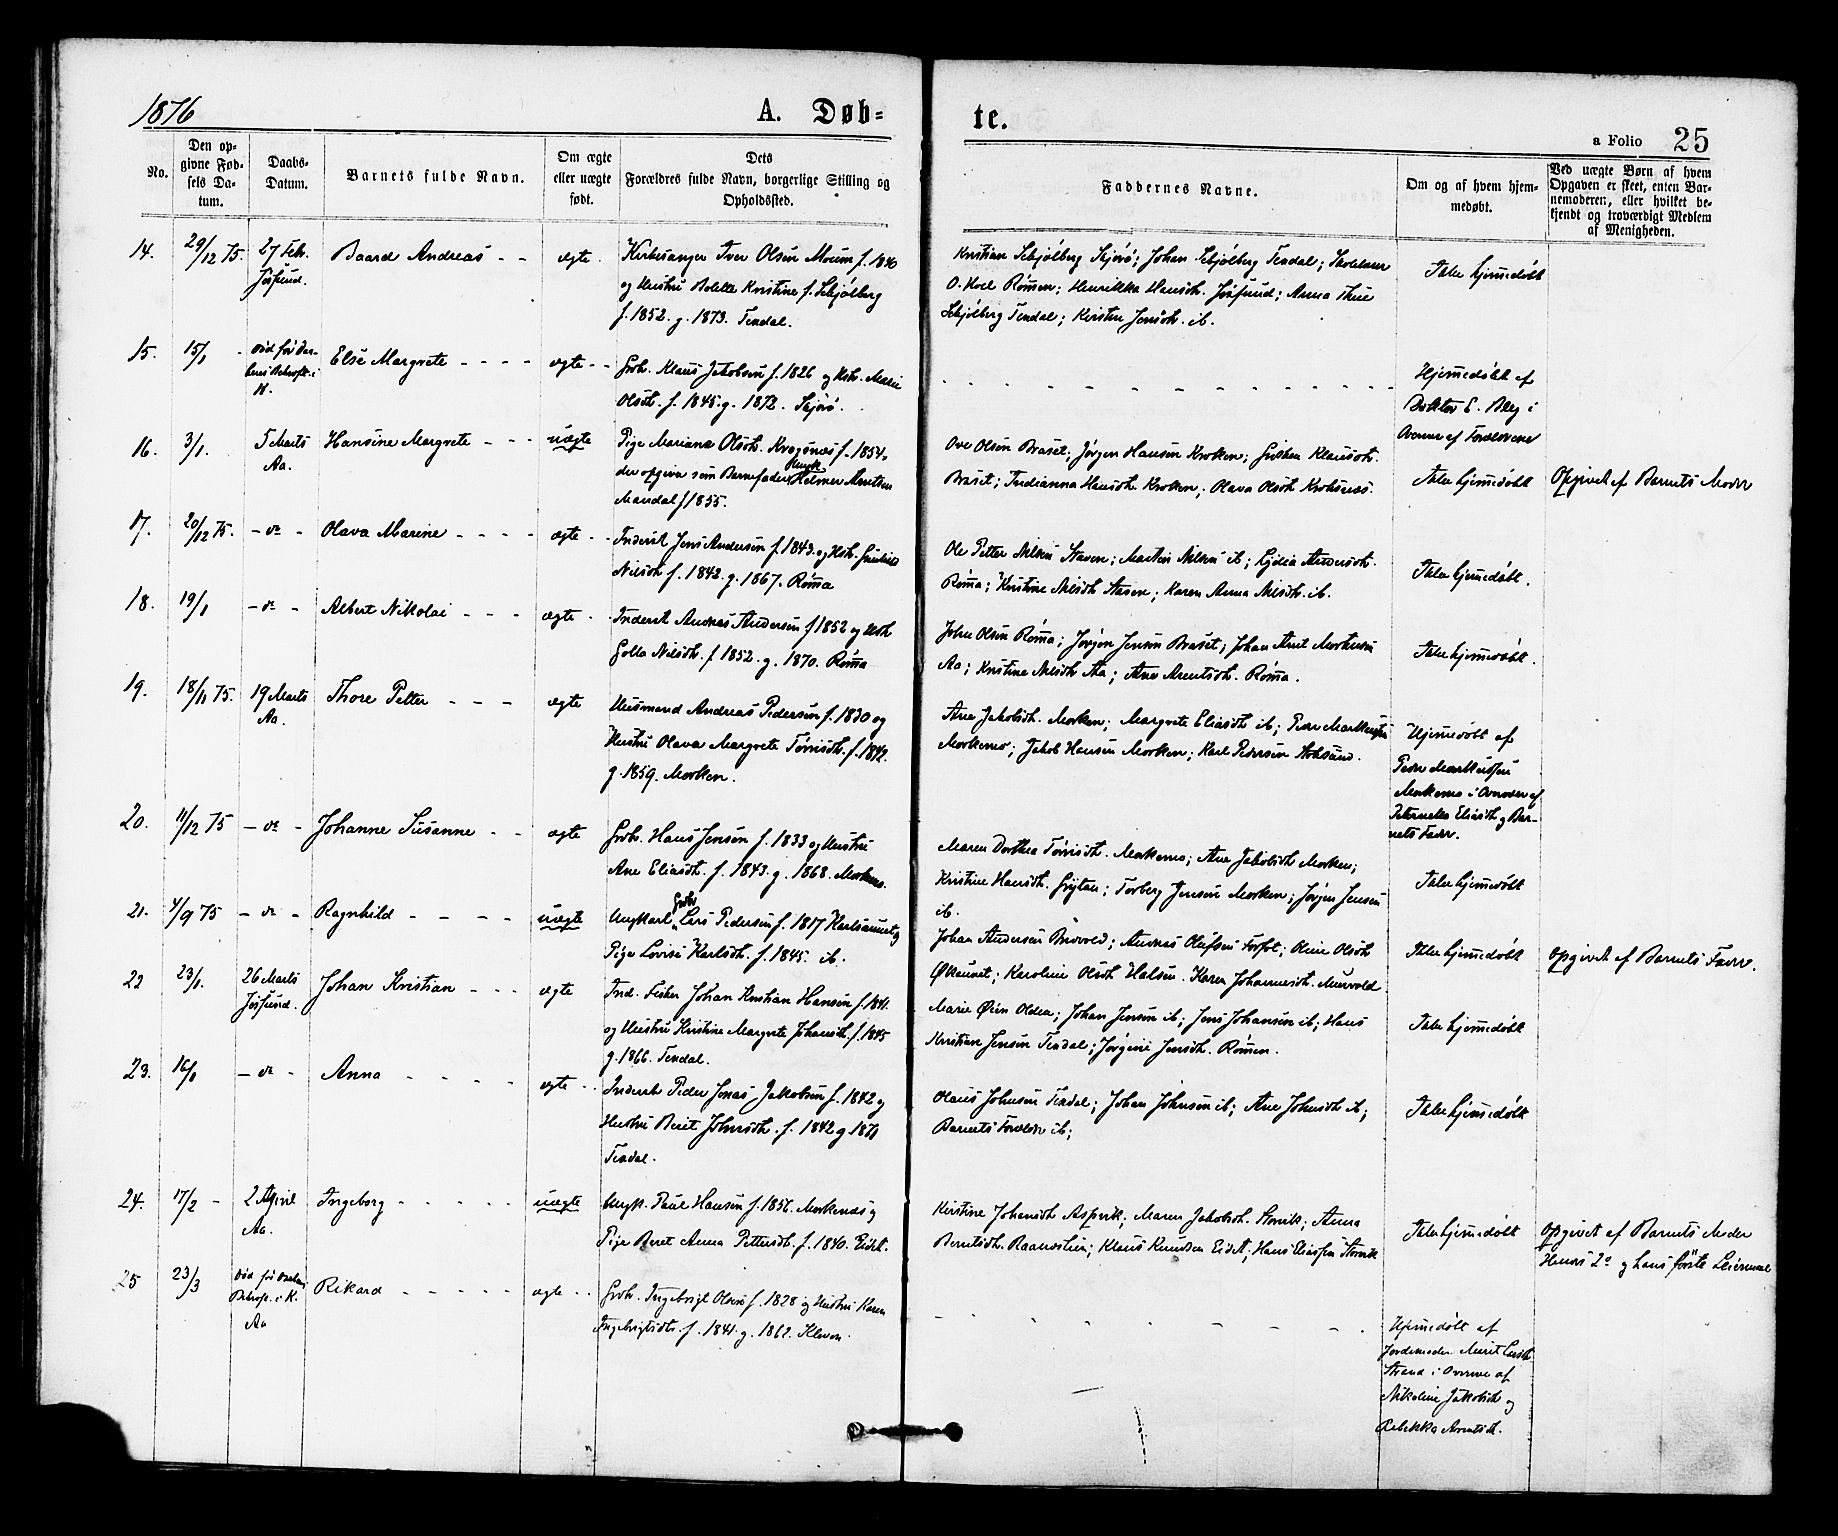 1876
A. Døb-
te.
a Folio 25
No.
Den op-
givne Fød-
sels Da-
tum.
Daabs-
Datum.
Barnets fulde Navn.
Om ægte
eller uægte
født.
Dets
Forældres fulde Navn, borgerlige Stilling og
Opholdssted.
Faddernes Navne.
Om og af hvem hjem-
medøbt.
Ved uægte Børn af hvem
Opgaven er skeet, enten Bar-
nemoderen, eller hvilket be-
kjendt og troværdigt Medlem
af Menigheden.
14. 29/12 75. 27 Febr. Baard Andreas - - ægte.
Jøsfund.
Kirkesanger Iver Olsen Moum f. 1840
og Hustru Bolette Kristine f. Schjølberg
f. 1852. g. 1873. Texdal.
Kristian Schjølberg Skjørø; Johan Schjølberg Texdal; Skolelærer
O. Hoel Rømen; Henrikka Hansdt. Jøsfund; Anna Thue
Schjølberg Texdal; Kirstin Jensdt. ib.
Ikke hjemmedøbt
15. 15/1 - Død før Bar-
nets
i
K.
Else Margrete - - - - ægte - -
Grbr. Klaus Jakobsen f. 1826 og Hstr. Marie
Olsdt. f. 1845. g. 1872. Skjørø.
Hjemmedøbt af
Doktor E. Bley i
Overvær af Forældrene
16. 3/1. 5 Marts
Aa.
Hansine Margrete - - - uægte
Pige Mariana Olsdt. Krogsnæs f. 1854.
der opgiver som Barnefader Ungk. Helmer Arntsen
Mandal f 1855.
Ove Olsen Braset; Jørgen Hansen Kroken; Klausdt.
Braset; Ferdianna Hansdt. Kroken; Olava Olsdt. Kroksnæs.
Ikke hjemmedøbt
Opgivet af Barnets Moder
17. 20/12 75. - do - Olava Marine - - - - ægte - -
Inderst Jens Andersen f. 1843. og Hstr.
Nilsdt f. 1842. g. 1867. Rømma
Ole Petter Nilsen Staven; Martin Nilsen ib; Lydia Andersdt.
Rømma; Kristine Nilsdt Staven; Karen Anna Nilsdt. ib.
Ikke hjemmedøbt.
18. 19/1 - do - Albert Nikolai - - - ægte -
Inderst Andreas Andersen f 1852 og Hstr
Golla Nilsdt. f 1852. g. 1870. Rømma
John Olsen Rømma; Jørgen Jensen Braset; Johan Arnt Mortensen
Aa; Kristine Nilsdt Aa; Ane Arentsdt. Rømma.
Ikke hjemmedøbt.
19. 18/11 75. 19 Marts
Aa.
Thore Petter - - - ægte
Husmand Andreas Pedersen f. 1830 og
Hustru Olava Margrete Tørrisdt. f. 1842.
g. 1859. Morken.
Ane Jakobsdt. Morken; Margrete Eliasdt ib; Peder Markussen
Morkemo; Jakob Hansen Morken; Karl Pedersen
Hjemmedøbt af
Peder Markussen
Morkemo i Overvær af
Petternelle Eliasdt og Bar-
nets Fader.
20. 11/12 75 - do - Johanne Susanne - - ægte
Grbr. Hans Jensen f. 1833 og Hustru
Ane Eliasdt. f. 1843. g. 1868. Morkemo.
Maren Dorthea Tørrisdt. Morkemo; Ane Jakobsdt Morken;
Kristine Hansdt. Grytan; Torberg Jensen Morken; Jørgen Jensen
ib.
Ikke hjemmedøbt
21. 4/9 75 - do - Ragnhild - - - - uægte
Ungkarl, Grbr Lars Pedersen f. 1817 Karlsaunet og
Pige Lovise Karlsdt. f. 1845. ib.
Johan Andersen; Andreas Olufsen; Oline Olsdt
Økaunet; Karoline Olsdt Halsen. Karen Johannesdt. Murvold
Ikke hjemmedøbt
Opgivet af Barnets Fader.
22 23/1. 26 Marts
Jøsfund.
Johan Kristian - - - ægte
Ind. Fisker Johan Kristian Hansen f. 1841.
og Hustru Kirstine Margrete Johansdt. f. 1845
g. 1866. Texdal.
Marie Øien Olden; Johan Jensen ib; Jens Johansen ib; Hans
Kristian Jensen Texdal; Jørgine Jensdt. Rømen.
Ikke hjemmedøbt
23. 16/1 - do - Anna - - - - ægte - -
Inderste Peder Jonas Jakobsen f. 1842 og
Hustru Berit Johnsdt. f. 1842 g 1871
Texdal.
Olaus Johnsen Texdal; Johan Johnsen ib; Ane Johnsdt ib;
Barnets Forældre ib;
Ikke hjemmedøbt
24. 17/2 - 2 April
Aa.
Ingeborg - - - - - uægte
Ungk. Paul Hansen f. 1856. Morkenæs og
Pige Beret Anna Pettersdt. f. 1840. Eidet.
Kirstine Johansdt Aspvik; Maren Jakobsdt. Storvik; Anna
Berntsdt. Raamoslien; Klaus Knudsen Eidet; Hans Eliassen Storvik
Ikke hjemmedøbt
Opgivet af Barnets Moder
Hendes 2o og hans første Leiermaal
25 23/3 Død før
i K.
Aa
Rikard - - - - - ægte - -
Grbr. Ingebrigt Olsen f. 1828 og Hustru Karen
Ingebrigtsdt. f. 1841. g. 1862. Kleven.
Hjemmedøbt af
Jordemoder Marit Larsdt
Strand i Overvær af
Nikoline Jakobsdt og
Rebekka Arentsdt.